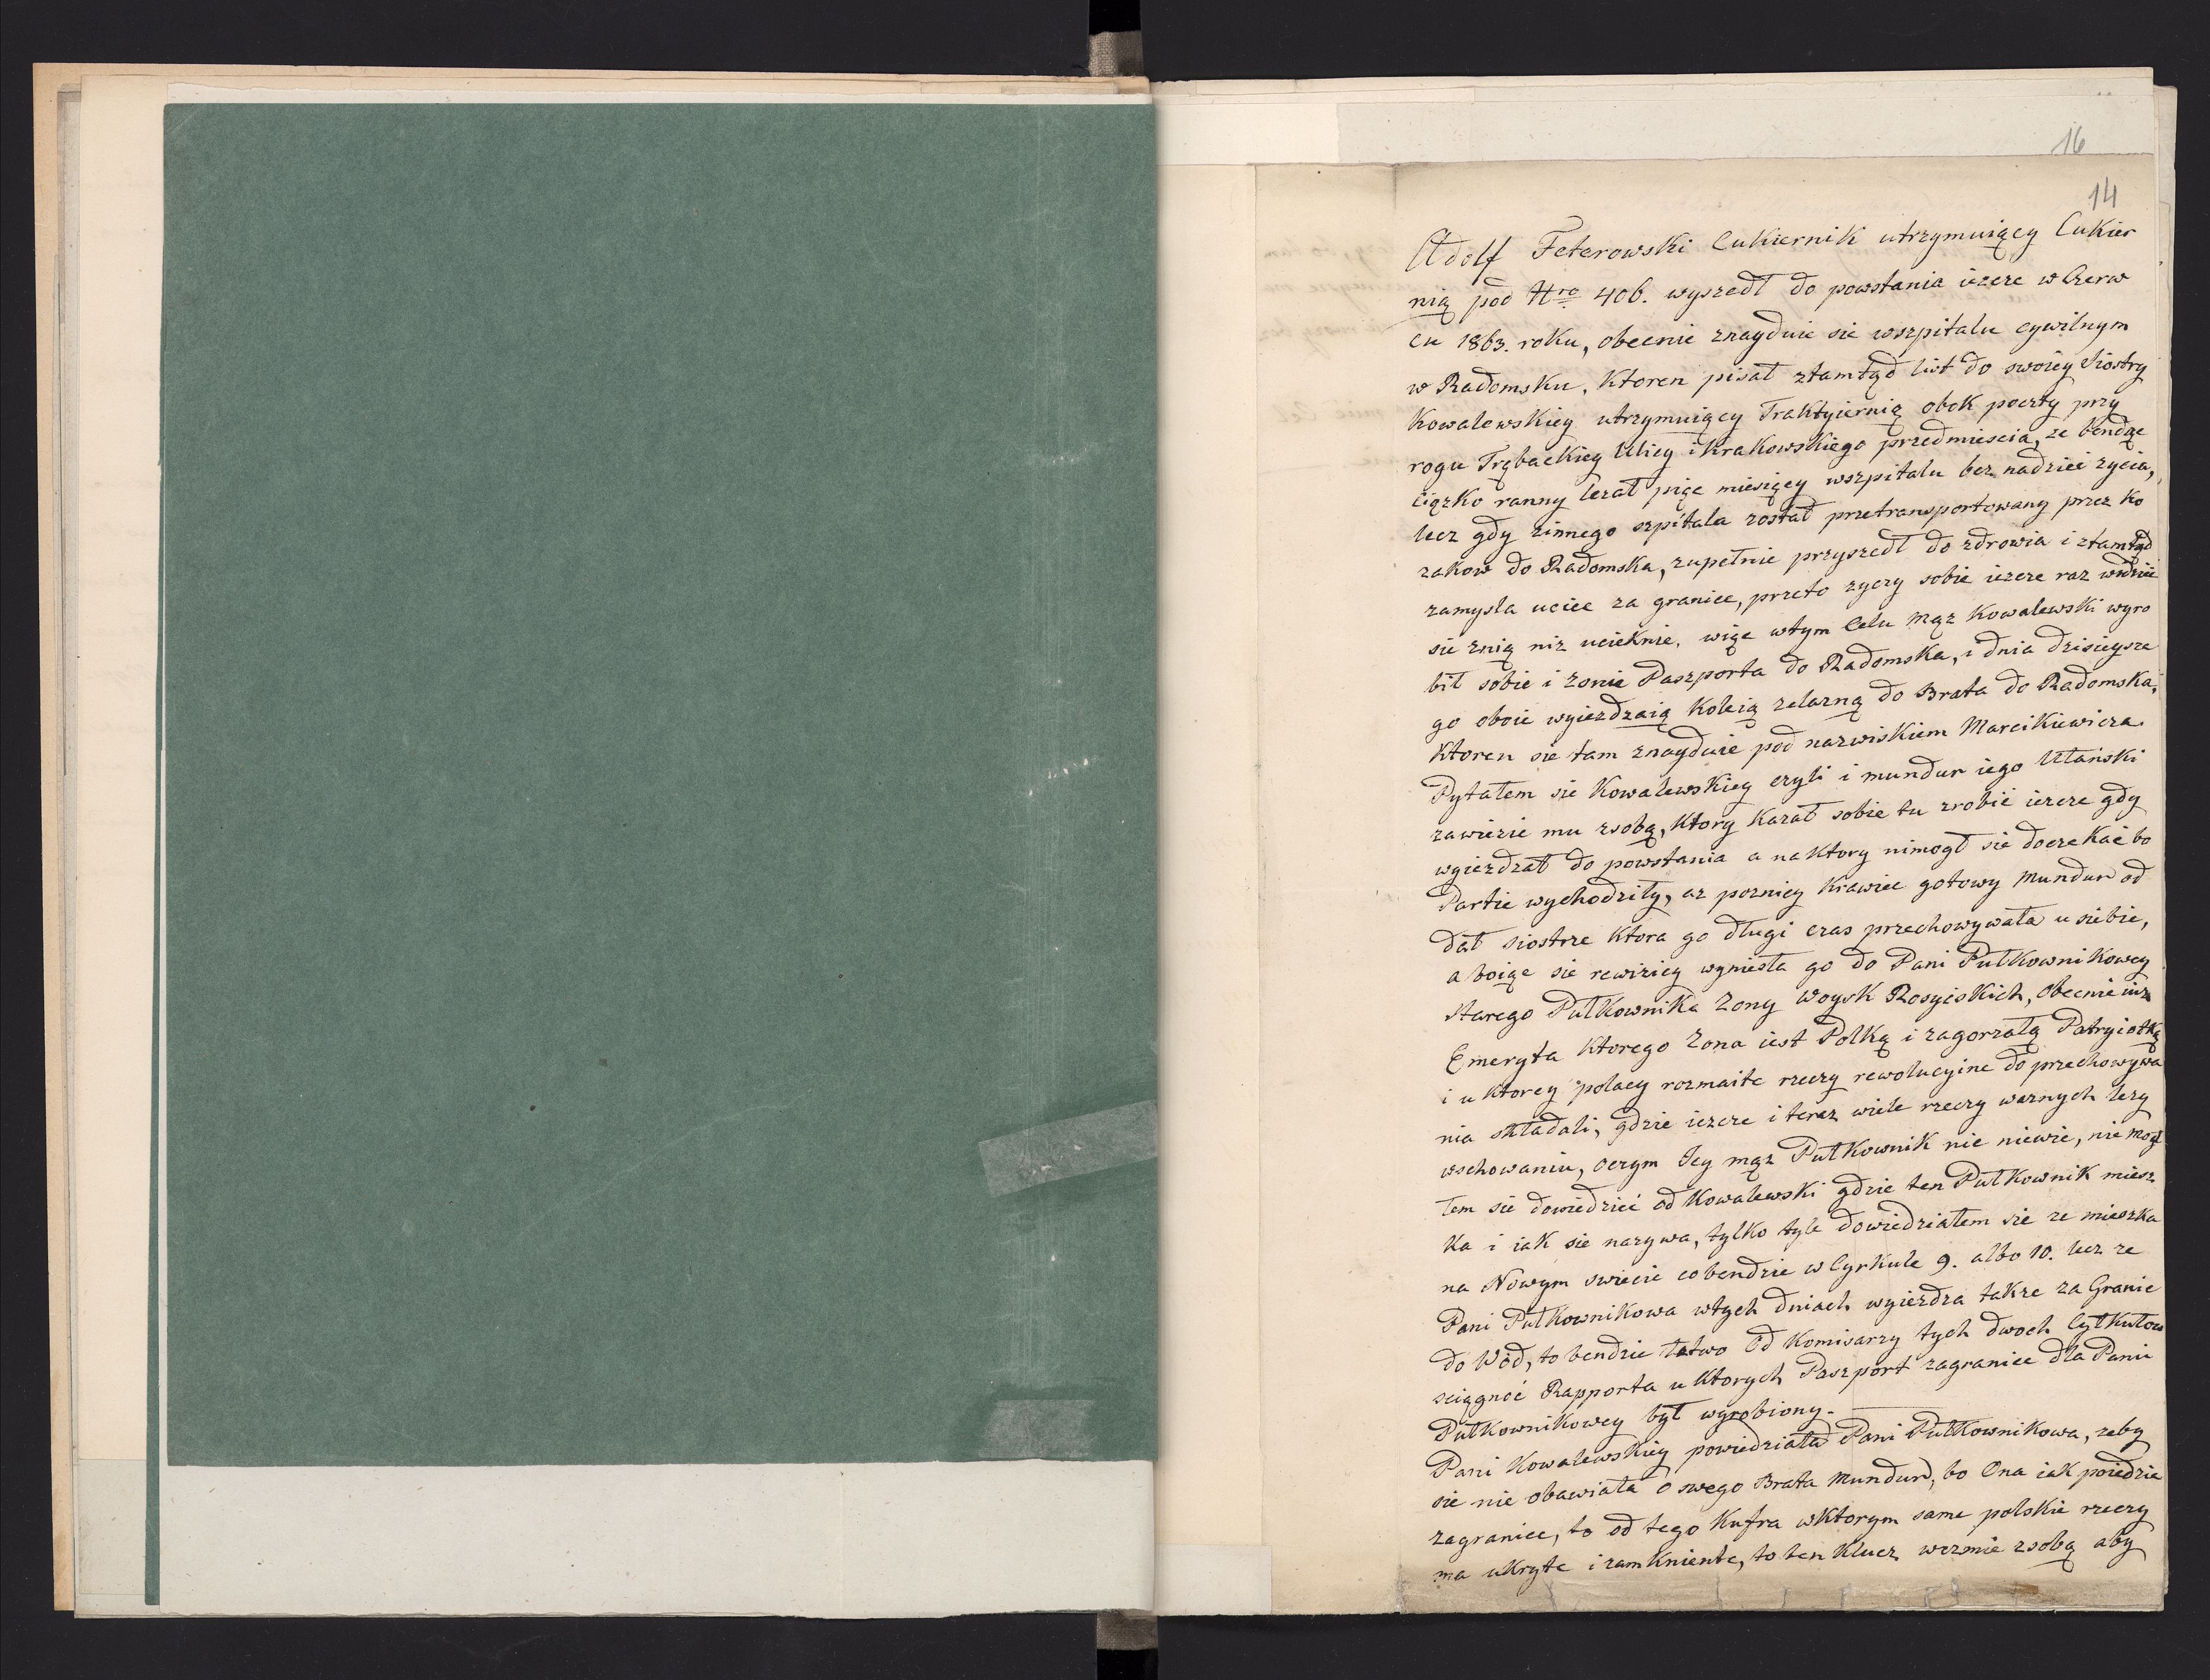 16
14
Adolf Feterowski Cukiernik utrzymuiący Cukier
nią pod Nro 406. wyszedł do powstania iezcze w Czerw
cu 1863. roku, obecnie znayduie sie wszpitalu cywilnym
w Radomsku, Ktoren pisał ztamtąd list do swoiey Siostry
Kowalewskiey utrzymuiącey Traktyiernią obok poczty przy
rogu Trębackiey Ulicy i Krakowskiego przedmiescia, ze bendąc
ciązko ranny lezał pięc miesięcy wszpitalu bez nadziei zycia,
lecz gdy zinnego szpitala został przetransportowany przez Ko
zakow do Radomska, zupełnie przyszedł do zdrowia i ztamtąd
zamysla uciec za granice, przeto zyczy sobie iezcze raz widzieć
sie znią niz ucieknie, więc wtym Celu mąz Kowalewski wyro
bił sobie i zonie Paszporta do Radomska, i dnia dzisieysze
go oboie wyiezdzaią Koleią zelazną do Brata do Radomska,
Ktoren sie tam znayduie pod nazwiskiem Marcikiewicza
Pytałem sie Kowalewskiey czyli i mundur iego Ułański
zawiezie mu zsobą, Ktory Kazał sobie tu zrobić iezcze gdy
wyiezdzał do powstania a na Ktory nimogł sie doczekać bo
Partie wychodziły, az pozniey Krawiec gotowy mundur od
dał siostrze Ktora go długi czas przechowywała u siebie,
a boiąc sie rewiziey wyniesła go do Pani Pułkownikowey
starego Pułkownika Zony Woysk Rosyiskich, obecnie iuz
Emeryta Ktorego Zona iest Polką i zagorzałą Patryiotką
i u Ktorey polacy rozmaite rzeczy rewolucyine do przechowywa
nia składali, gdzie iezcze i teraz wiele rzeczy waznych lezy
wschowaniu, oczym Jey mąz Pułkownik nic niewie, nie mog
łem sie dowiedzieć od Kowalewski gdzie ten Pułkownik miesz
ka i iak sie nazywa, tylko tyle dowiedziałem sie ze mieszka
na Nowym swiecie co bendzie w Cyrkule 9. albo 10. lecz ze
Pani Pułkownikowa wtych dniach wyiezdza takze za Granic
do Wód, to bendzie łatwo od Komisarzy tych dwoch Cyłkułow
sciągnoć Rapporta u Ktorych Paszport zagranice dla Panii
Pułkownikowey był wyrobiony.
Pani Kowalewskiey powiedziała Pani Pułkownikowa, zeby
sie nie obawiała o swego Brata mundur, bo Ona iak poiedzie
zagranice, to od tego Kufra wktorym same polskie rzeczy
ma ukryte i zamkniente, to ten Klucz wezmie zsobą aby